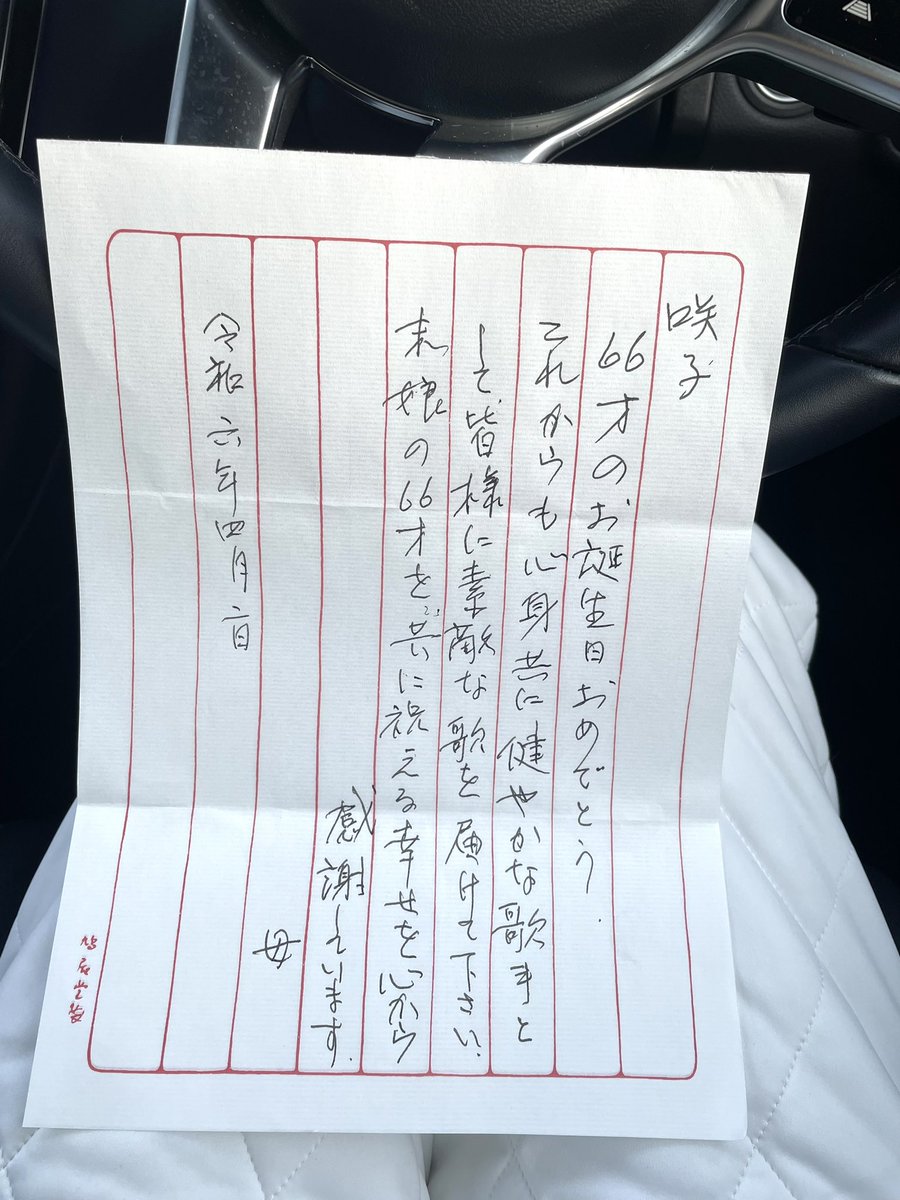 咲子
66才のお誕生日おめでとう.
これからも心身共に健やかな歌手と
して皆様に素敵な歌を届けて下さい.
末娘の66才を共に祝える幸せを心から
感謝しています.
母
令和六年四月二日
鳩居堂製